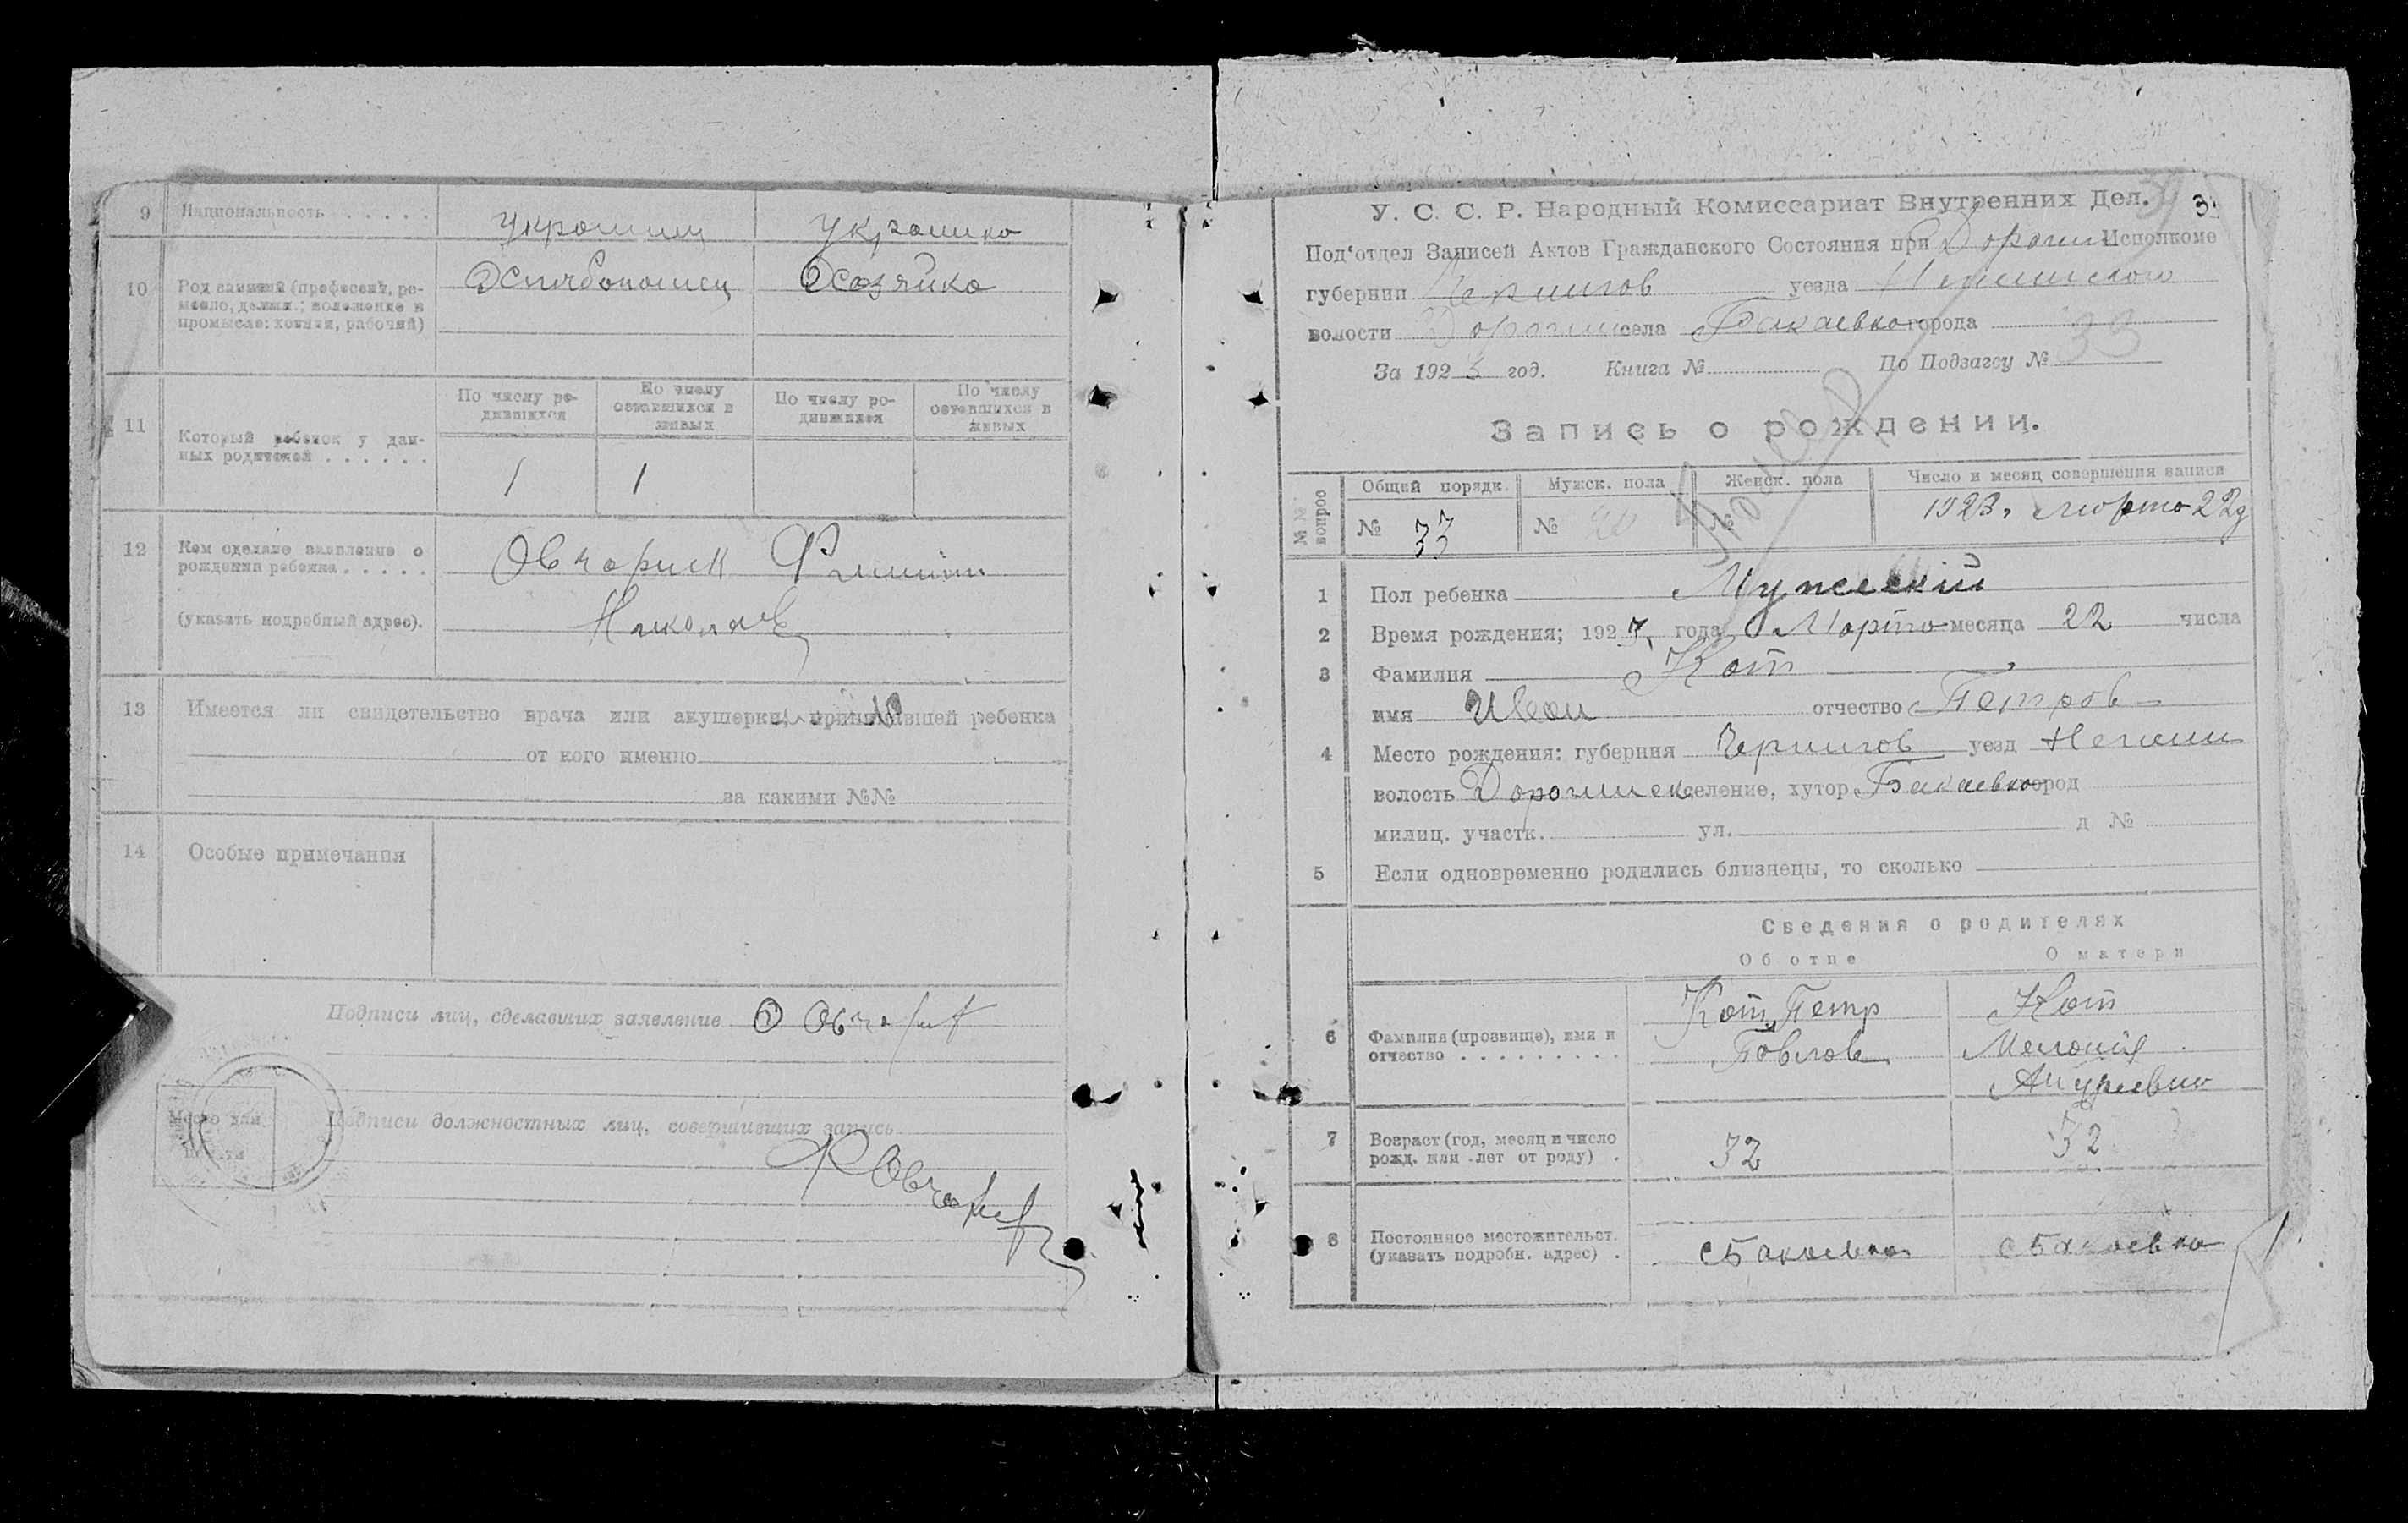 9 Национальность . . . . . . украинец украинка
10 Род занятий (професспя, ре-
месло, должн.; положение в
промысле: хозяин, рабочий)
Хлебопашец Хозяйка
11 Который ребенок у дан-
ных родителей . . . . . .
По числу ро-
дившихся
По числу
оставшихся в
живых
По числу ро-
дившихся
По числу
оставшихся в
живых
1 1
12 Кем сделано заявление о
рождении ребенка . . . . .
(указать подробный адрес).
Овчарик
Николаев
13 Имеется ли свидетельство врача или акушерки, принимавшей ребенка
от кого именно
за какими №№
14 Особые примечания
Подписи лиц, сделавших заявление
Место для
печати
Подписи должностных лиц, совершивших запись
У. С. С. Р. Народный Комиссариат Внутренних Дел.
Под'отдел Записей Актов Гражданского Состояния при Дорогин Исполкоме
губернии Чернигов уезда Неженского
волости Дорогин села Бакаевка города
За 1923 год. Книга № По Подзагсу № 33
Запись о рождении.
№№ вопрос
Общий порядк. Мужск. пола Женск. пола Число и месяц совершения записи
№ 33 № № 1923, марта 22д
1 Пол ребенка Мужеский
2 Время рождения; 1923 года Марта месяца 22 числа
3 Фамилия Кот
имя Иван отчество Петров
4 Место рождения: губерния Чернигов уезд Нежин
волость Дорогинск селение, хутор Бакаевка город
милиц. участк. ул. д №
5 Если одновременно родились близнецы, то сколько
Сведения о родителях
Об отце О матери
6 Фамилия (прозвище), имя и
отчество . . . . . . . . .
Кот Петр
Павлов
Кот
Мелания
Андреевна
7 Возраст (год, месяц и число
рожд. или лет от роду) .
32 32
8 Постоянное местожительст.
(указать подробн. адрес) .
с Бакаевка с Бакаевка